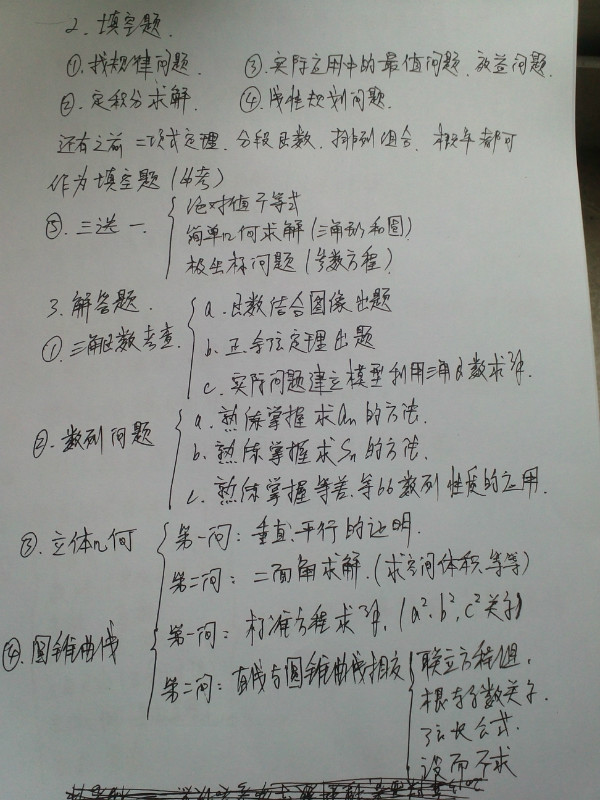 2. 填空题.
①. 找规律问题. ③. 实际应用中的最值问题. 效益问题.
②. 定积分求解. ④. 线性规划问题.
还有之前二项式定理. 分段函数. 排列组合. 概率都可
作为填空题(必考)
⑤. 三选一. 绝对值不等式
简单几何求解(三角形和圆)
极坐标问题(参数方程)
3. 解答题.
①. 三角函数考查. a. 函数结合图像出题
b. 正.余弦定理出题
c. 实际问题建立模型利用三角函数求解.
②. 数列问题 a. 熟练掌握求an的方法.
b. 熟练掌握求Sn的方法.
c. 熟练掌握等差.等比数列性质的应用.
③. 立体几何 第一问: 垂直.平行的证明.
第二问: 二面角求解.(求空间体积等等)
④. 圆锥曲线 第一问: 标准方程求解. (a².b².c²关系)
第二问: 直线与圆锥曲线相交 联立方程组.
根与系数关系.
弦长公式.
设而不求